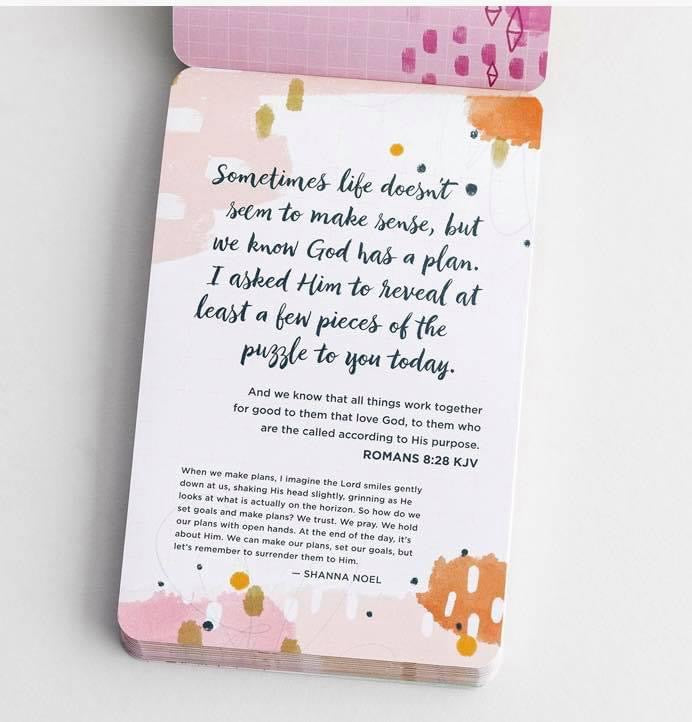 Sometimes life doesn't
seem to make sense, but
we know God has a plan.
I asked Him to reveal at
least a few pieces of the
puzzle to you today.
And we know that all things work together
for good to them that love God, to them who
are the called according to His purpose.
ROMANS 8:28 KJV
When we make plans, I imagine the Lord smiles gently
down at us, shaking His head slightly, grinning as He
looks at what is actually on the horizon. So how do we
set goals and make plans? We trust. We pray. We hold
our plans with open hands. At the end of the day, it's
about Him. We can make our plans, set our goals, but
let's remember to surrender them to Him.
— SHANNA NOEL